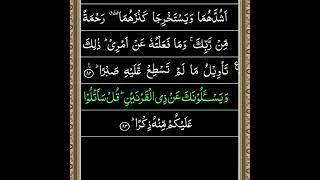 اَشُدَّهُمَا وَيَسْتَخْرِجَا كَنْزَهُمَا ۖ رَحْمَةً
مِّنْ رَّبِّكَ ۚ وَمَا فَعَلْتُهٗ عَنْ اَمْرِیْ ؕ ذٰلِكَ
تَاْوِيْلُ مَا لَمْ تَسْطِعْ عَّلَيْهِ صَبْرًا ؕ ۸۲
وَيَسْـَٔلُوْنَكَ عَنْ ذِی الْقَرْنَيْنِ ؕ قُلْ سَاَتْلُوْا
عَلَيْكُمْ مِّنْهُ ذِكْرًا ؕ ۸۳